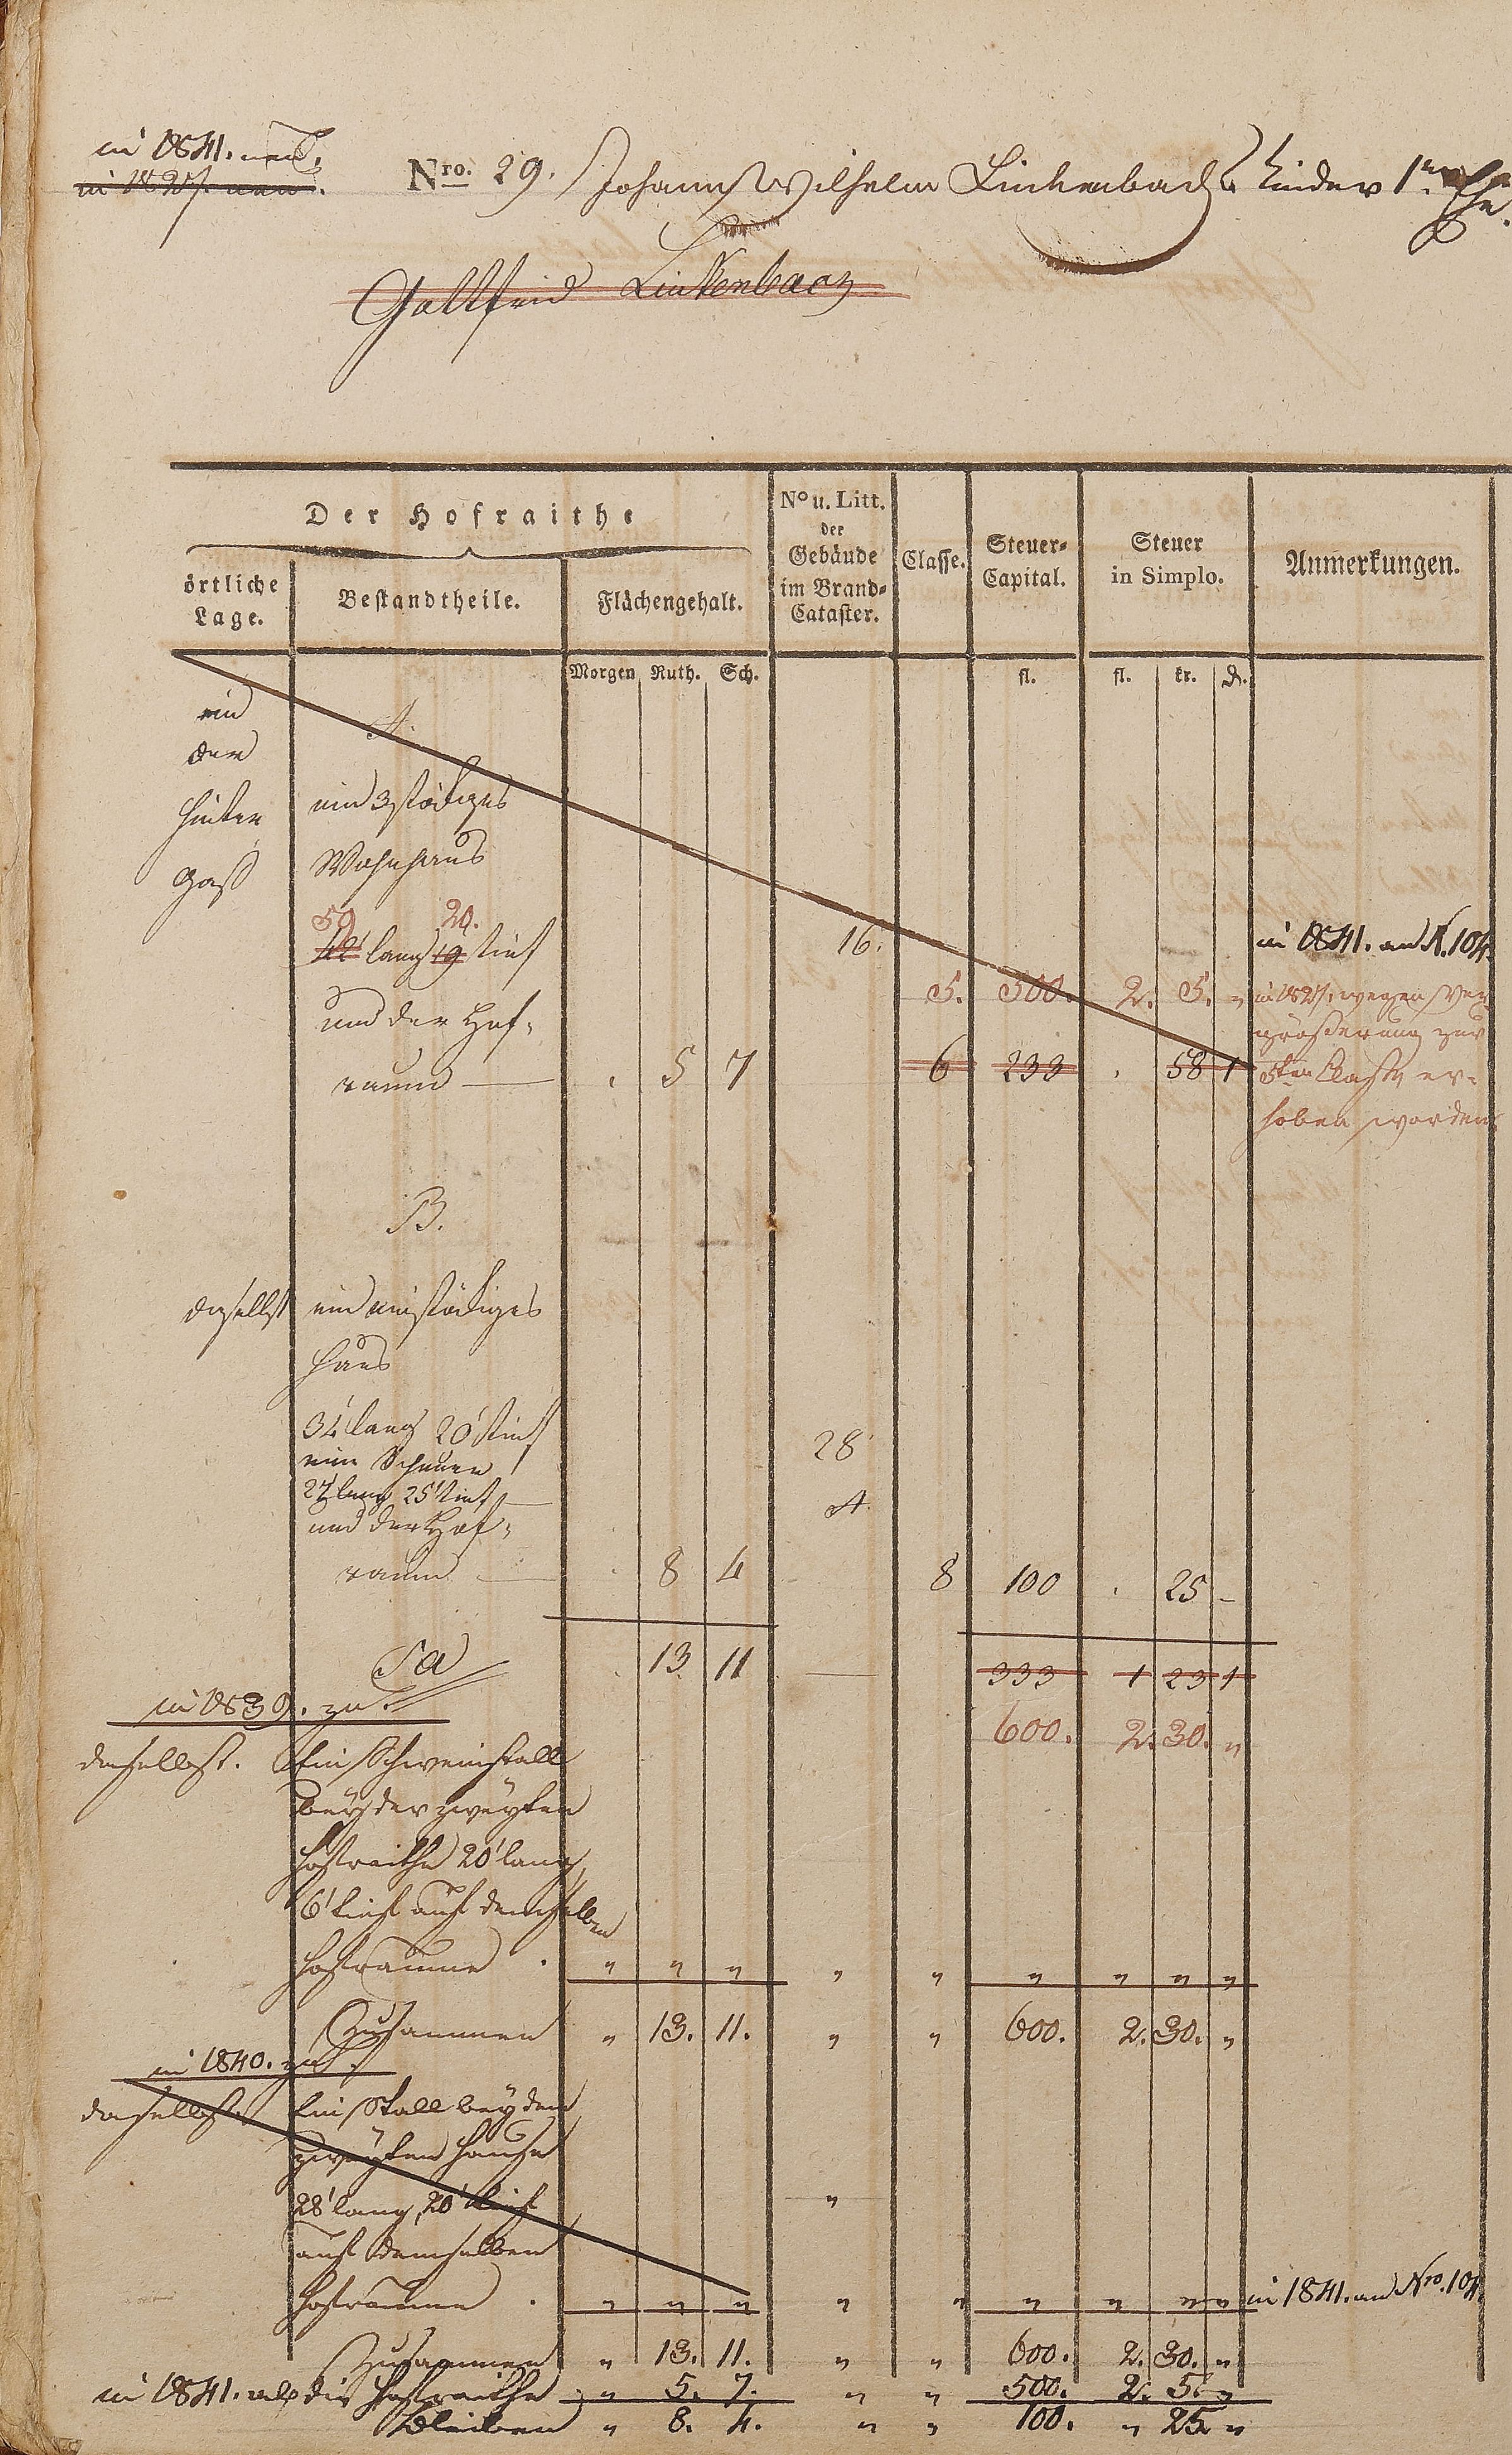 in 1841. neu.
in 1827. neu.
Nro. 29. Johann Wilhelm Linkenbach Kinder 1r Ehe.
Gottfried Linkenbach
Der Hofraithe
örtliche Lage.
Bestandtheile.
Flächengehalt.
No u. Litt. der Gebäude im Brand-Cataster.
Classe.
Steuer-Capital.
Steuer in Simplo.
Anmerkungen.
Morgen Ruth. Sch. fl. fl. kr. d.
in A.
der
Hinter ein 3stöckiges
Gaß Wohnhaus
50 20.
42 lang 19 tief 16. in 1841. an N. 104.
und der Hof- 5. 500. 2. 5. „ in 1827. wegen Ver-
größerung zur
raum — . 5 7 6 233 . 58 1 5ten Classe er-
hoben worden
B.
daselbst ein einstöckiges
Haus
34' lang 20' tief 28
eine Scheuer
27' lang 25' tief — A.
und der Hof-
raum — . 8 4 8 100 . 25 –
Sa . 13. 11 — 333 1 23 1
in 1839. zu.
600. 2. 30. „
daselbst. Ein Schweinstall
bey der zweyten
Hofraithe 20' lang,
6' tief auf demselben
Hofraume . „ „ „ „ „ „ „ „ „
Zusammen „ 13. 11. „ „ 600. 2. 30. „
in 1840. zu.
daselbst. Ein Stall bey dem
zweyten Hause
28' lang, 20' tief „
auf demselben
Hofraume . „ „ „ „ „ „ „ „ „ in 1841. an Nro. 104.
Zusammen „ 13. 11. „ „ 600. 2. 30. „
in 1841. ab die Hofraithe „ 5. 7. „ „ 500. 2. 5. „
bleiben „ 8. 4. „ „ 100. „ 25. „